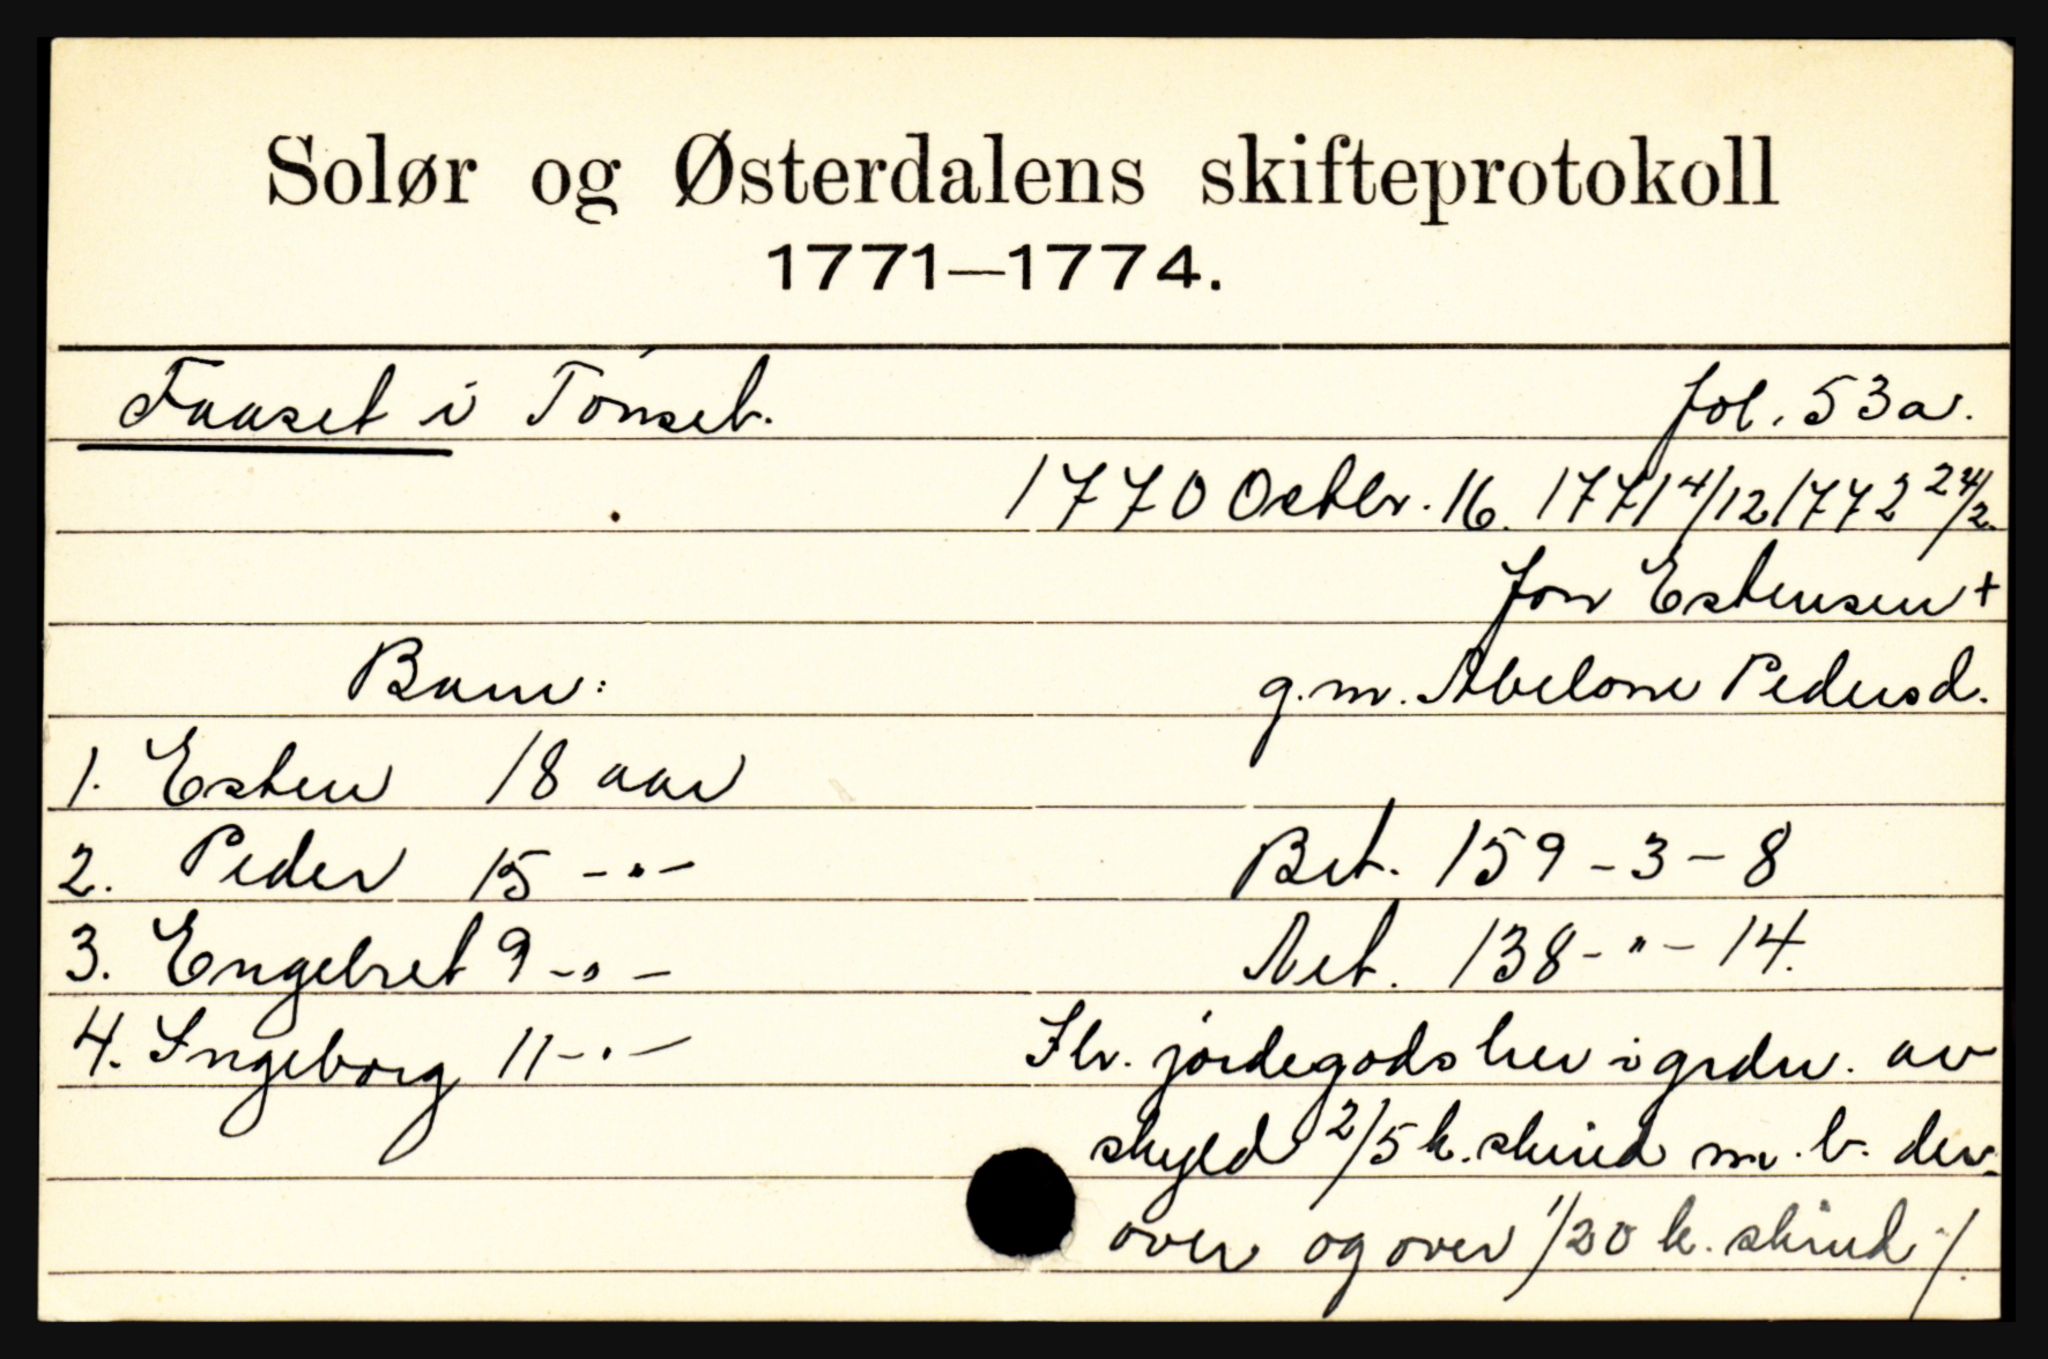 Solør og Østerdalens skifteprotokoll
1771—1774.
Faaset i Tönset.
fol. 53a.
1770 Octbr. 16. 1771 4/12 1772 24/2.
Jon Estensen +
Barn:
g. m. Abelone Pedersd.
1. Esten 18 aar
2. Peder 15 -"-
Brt. 159 - 3 - 8
3. Engebret 9 -"-
Net. 138 - " - 14.
4. Ingeborg 11 -"-
Flr. jördegods her i grdn. av
skyld 2/5 h. skind m. b. der-
over og over 1/20 h. skind ./.